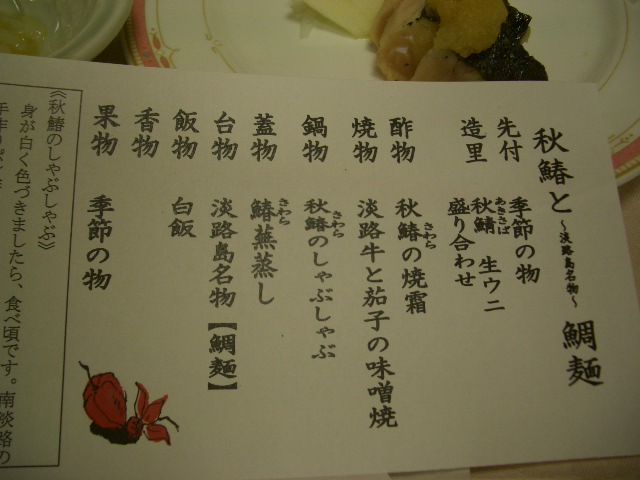 秋鰆と～淡路島名物～鯛麺
先付 季節の物
造里 秋鯖 生ウニ
あきさば
盛り合わせ
酢物 秋鰆の焼霜
さわら
焼物 淡路牛と茄子の味噌焼
鍋物 秋鰆のしゃぶしゃぶ
さわら
蓋物 鰆蕪蒸し
さわら
台物 淡路島名物【鯛麺】
飯物 白飯
香物
果物 季節の物
《秋鰆のしゃぶしゃぶ》
身が白く色づきましたら、食べ頃です。南淡路の